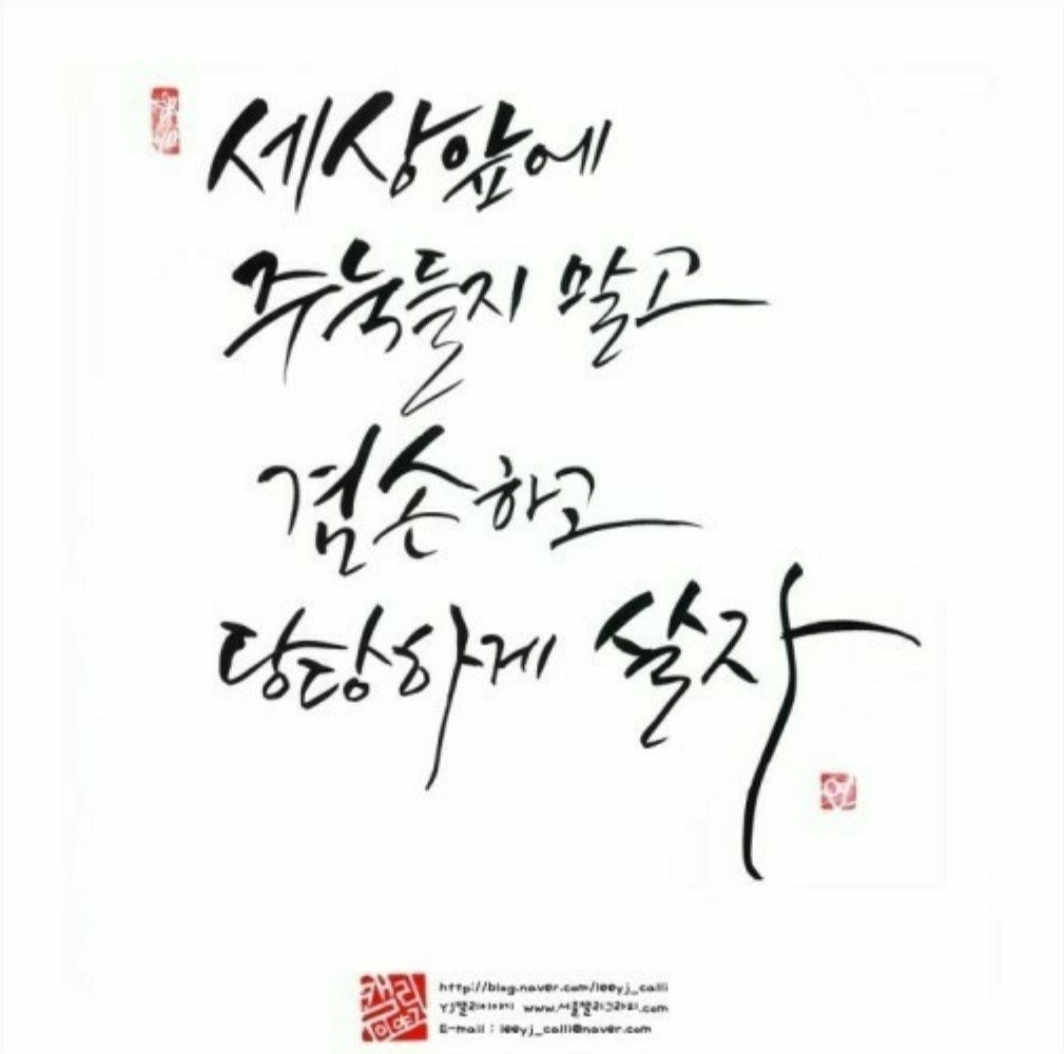 세상앞에
주눅들지 말고
겸손하고
당당하게 살자
연
캘리
이야기
http://blog.naver.com/leeyj_calli
YJ캘리이야기 www.서울캘리그라피.com
E-mail : leeyj_calli@naver.com